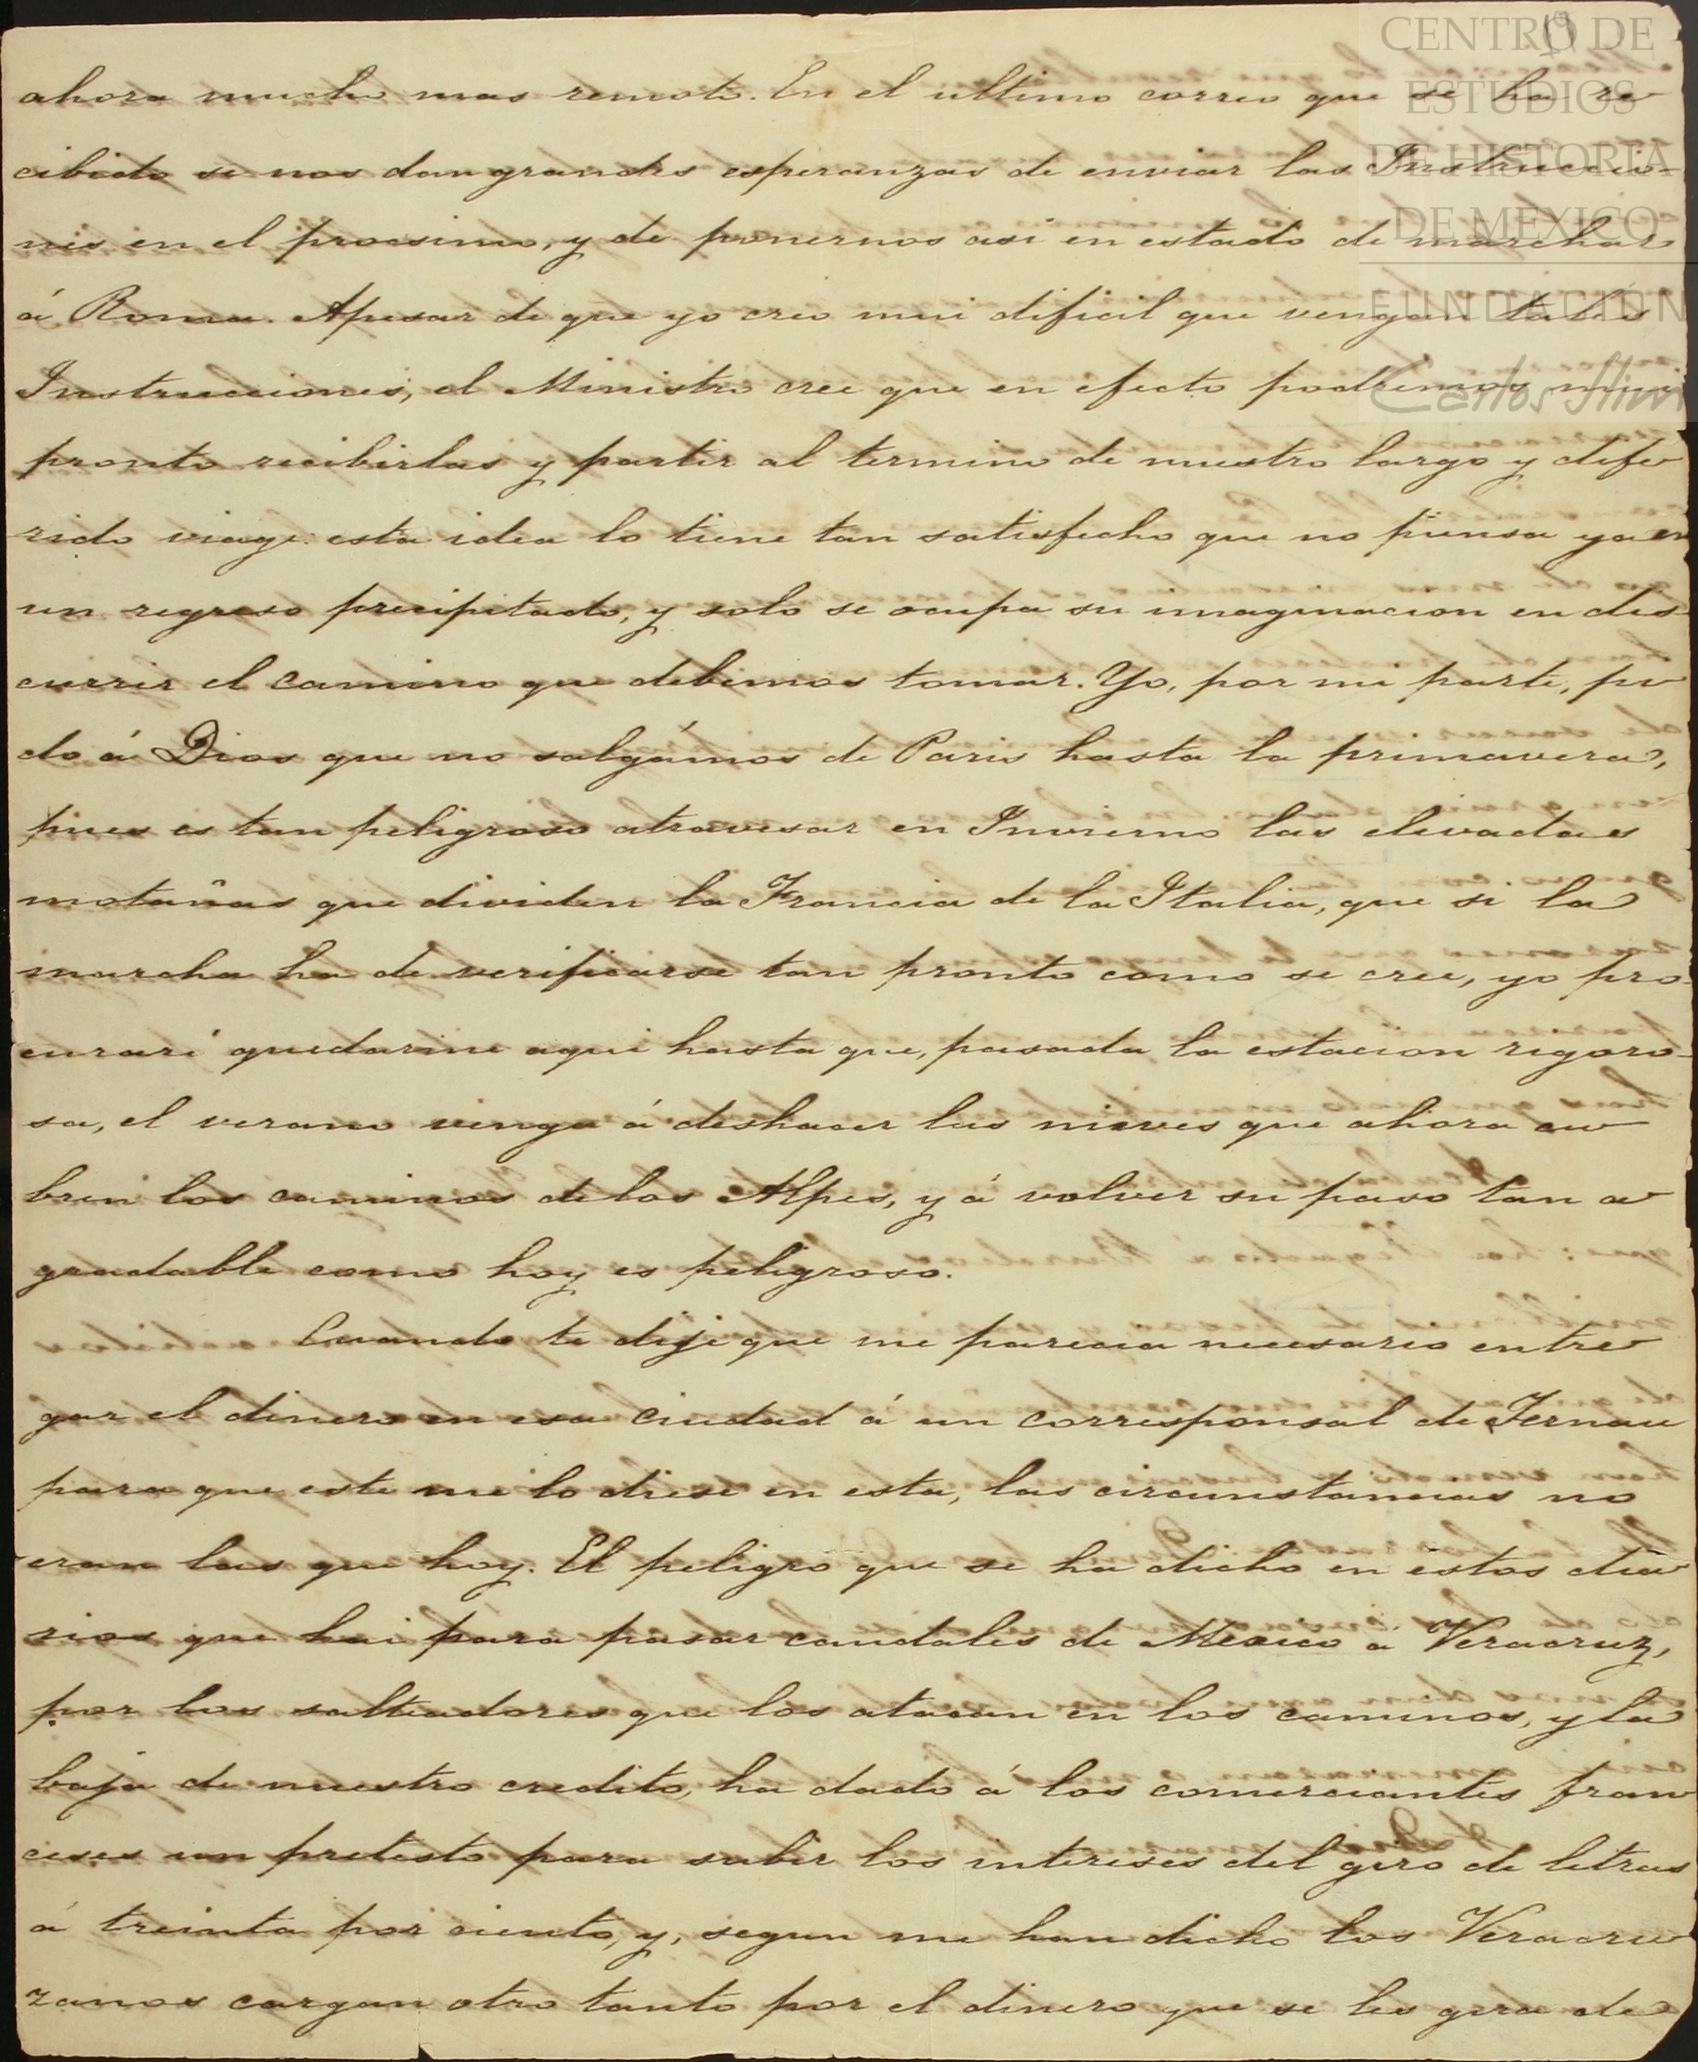 CENTRO DE
ESTUDIOS
DE HISTORIA
DE MEXICO
FUNDACIÓN
Carlos Slim
ahora mucho mas remoto. En el ultimo correo que se ha re
cibido se nos dan grandes esperanzas de enviar las Instruccio-
nes en el procsimo, y de ponernos asi en estado de marchar
á Roma. Apesar de que yo creo mui dificil que vengan tales
Instrucciones, el Ministro cree que en efecto podremos mui
pronto recibirlas y partir al termino de nuestro largo y dife
rido viage: esta idea lo tiene tan satisfecho que no piensa ya en
un regreso precipitado, y solo se ocupa su imaginacion en dis-
currir el camino que debemos tomar. Yo, por mi parte, pi
do á Dios que no salgámos de Paris hasta la primavera,
pues es tan peligroso atravesar en Invierno las elevadas
motañas que dividen la Francia de la Italia, que si la
marcha ha de verificarse tan pronto como se cree, yo pro-
curaré quedarme aqui hasta que, pasada la estacion rigoro-
sa, el verano venga á deshacer las nieves que ahora cu
bren los caminos de los Alpes, y á volver su paso tan a
gradable como hoy es peligroso.
Cuando te dije que me parecia necesario entre
gar el dinero en esa Ciudad á un corresponsal de Ternau
para que este me lo diese en esta, las circunstancias no
eran las que hoy. El peligro que se ha dicho en estos dia
rios que hai para pasar caudales de Mexico á Veracruz,
por los salteadores que los atacan en los caminos, y la
baja de nuestro credito, ha dado á los comerciantes fran
ceses un pretesto para subir los intereses del giro de letras
á treinta por ciento, y, segun me han dicho los Veracru
zanos cargan otro tanto por el dinero que se les gira de